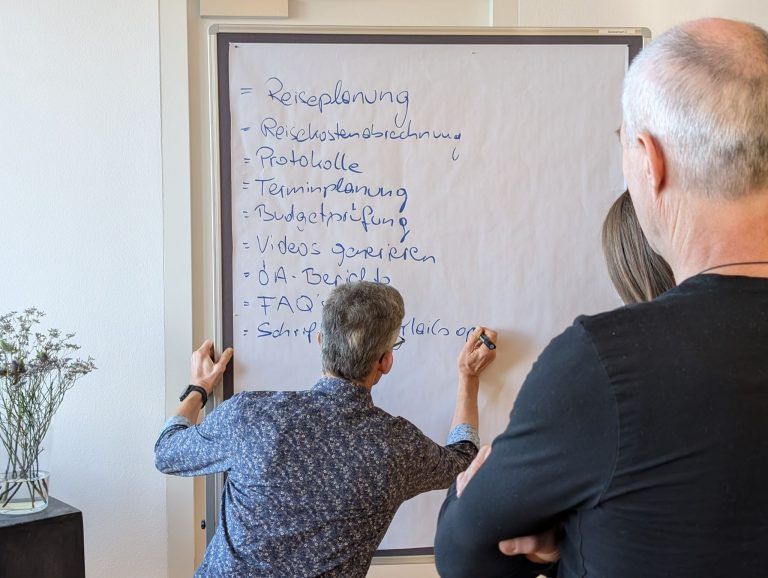 = Reiseplanung
= Reisekostenabrechnung
= Protokolle
= Terminplanung
= Budgetprüfung
= Videos generieren
= ÖA-Berichte
= FAQ's
=